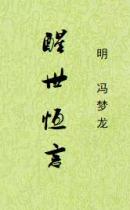 醒世恒言
明 冯梦龙